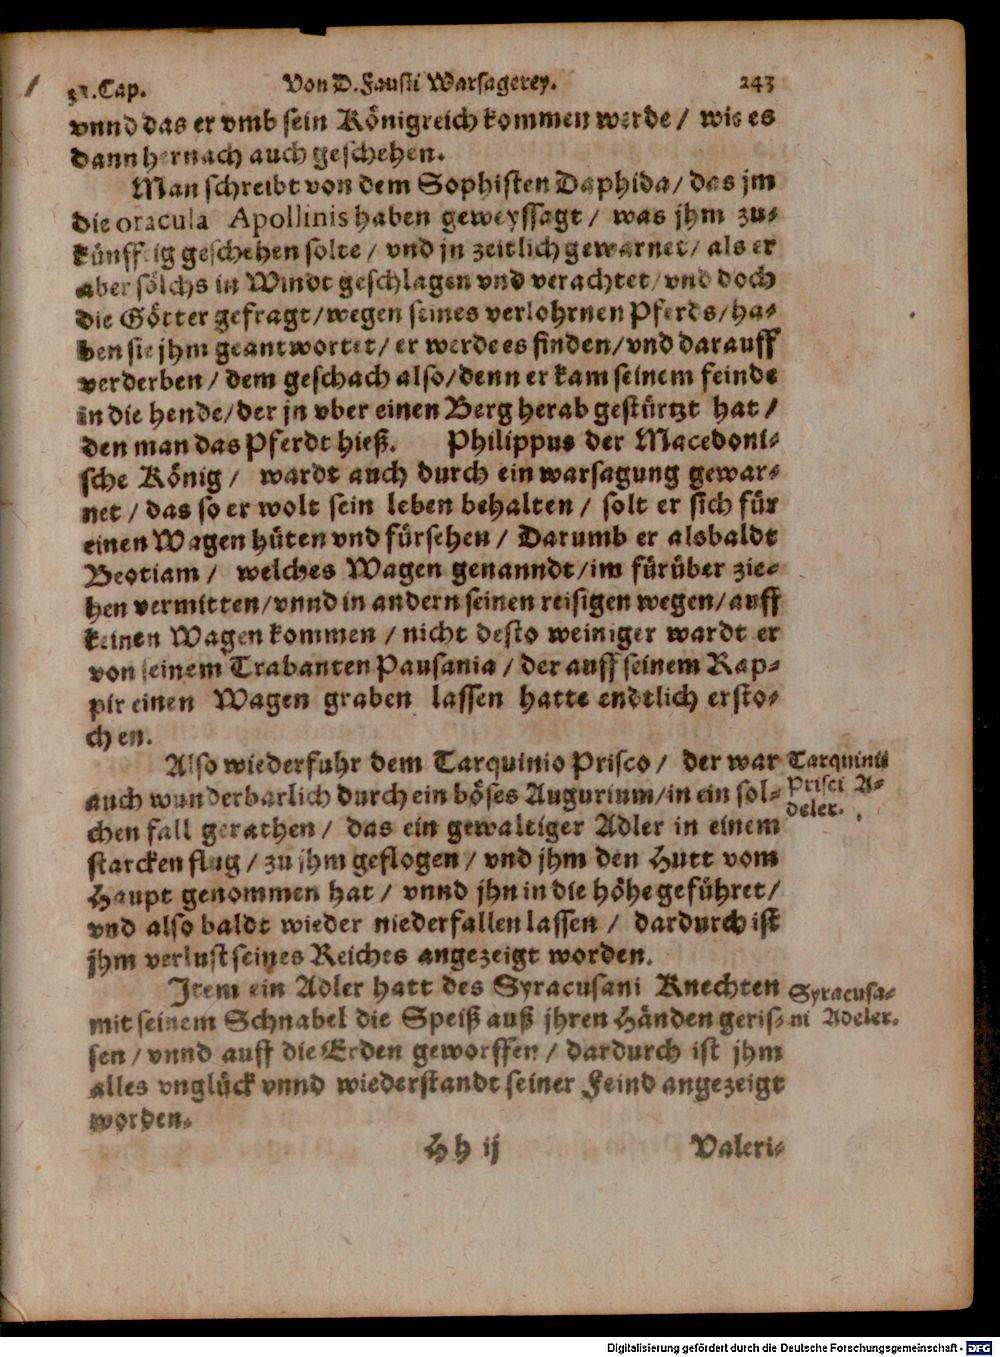 31.Cap. Von D. Fausti Warsagerey. 243
vnnd das er vmb sein Königreich kommen werde / wie es
dann hernach auch geschehen.
Man schreibt von dem Sophisten Daphida / das jm
die oracula Apollinis haben geweyssagt / was jhm zu-
künfftig geschehen solte / vnd jn zeitlich gewarnet / als er
aber sölchs in Windt geschlagen vnd verachtet / vnd doch
die Götter gefragt / wegen seines verlohrnen Pferds / ha-
ben sie jhm geantwortet / er werde es finden / vnd darauff
verderben / dem geschach also / denn er kam seinem feinde
in die hende / der jn vber einen Berg herab gestürtzt hat /
den man das Pferdt hieß. Philippus der Macedoni-
sche König / wardt auch durch ein warsagung gewar-
net / das so er wolt sein leben behalten / solt er sich für
einen Wagen hüten vnd fürsehen / Darumb er alsbaldt
Beotiam / welches Wagen genanndt / im fürüber zie-
hen vermitten / vnnd in andern seinen reisigen wegen / auff
keinen Wagen kommen / nicht desto weiniger wardt er
von seinem Trabanten Pausania / der auff seinem Rap-
pir einen Wagen graben lassen hatte endtlich ersto-
chen.
Also wiederfuhr dem Tarquinio Prisco / der war
auch wunderbarlich durch ein böses Augurium / in ein sol-
chen fall gerathen / das ein gewaltiger Adler in einem
starcken flug / zu jhm geflogen / vnd jhm den Hutt vom
Haupt genommen hat / vnnd jhn in die höhe geführet /
vnd also baldt wieder niederfallen lassen / dardurch ist
jhm verlust seines Reiches angezeigt worden.
Tarquinii
Prisci A-
deler.
Item ein Adler hatt des Syracusani Knechten
mit seinem Schnabel die Speiß auß jhren Händen geris-
sen / vnnd auff die Erden geworffen / dardurch ist jhm
alles vnglück vnnd wiederstandt seiner Feind angezeigt
worden.
Syracusa-
ni Adeler.
Hh ij Valeri-
Digitalisierung gefördert durch die Deutsche Forschungsgemeinschaft - DFG